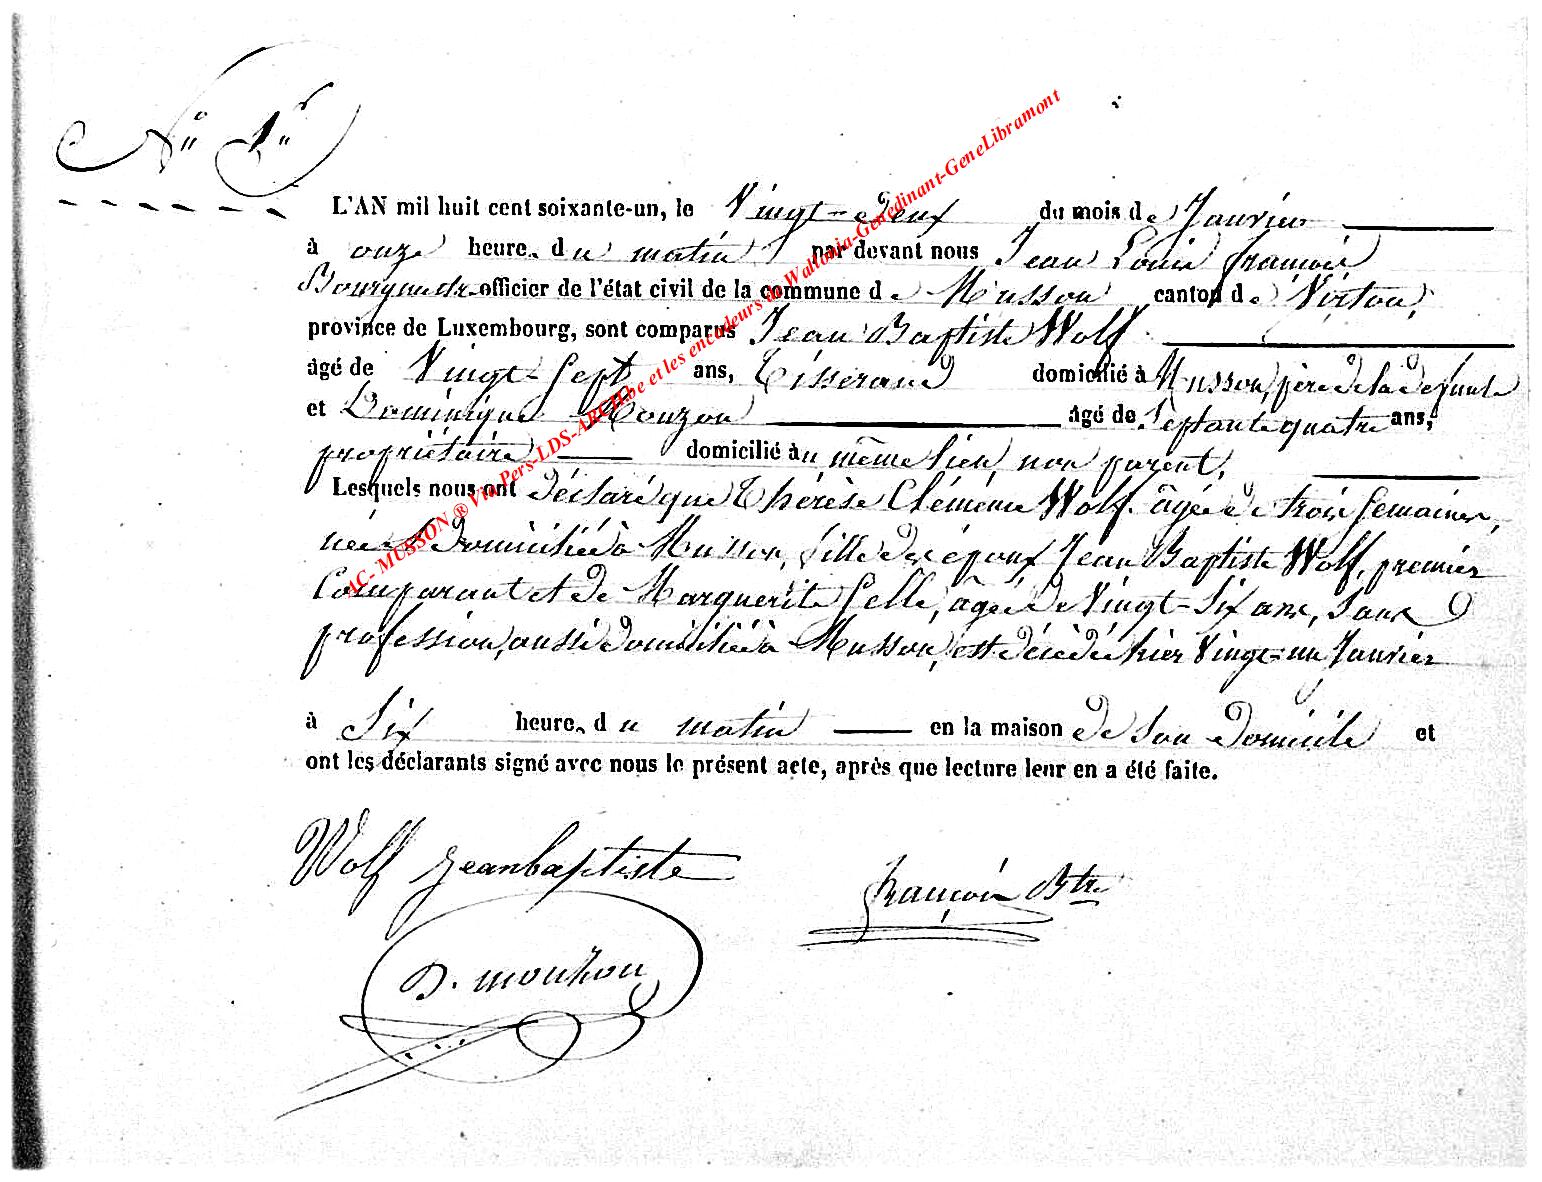 No 1er
L'AN mil huit cent soixante-un, le Vingt-deux du mois de Janvier
à onze heure. du matin par devant nous Jean Louis françois
officier de l'état civil de la commune de Musson canton de Virton,
province de Luxembourg, sont comparus Jean Baptiste Wolf
âgé de Vingt-Sept ans, Tisserand domicilié à Musson, père de la défunte
et Dominique Mouzon âgé de Septante quatre ans,
propriétaire domicilié au même lieu, non parent,
Lesquels nous ont déclaré que Thérèse Clémence Wolf âgée de trois Semaines,
née et domiciliée à Musson, fille des époux Jean Baptiste Wolf, premier
Comparant et de Marguerite Gelle, âgée de Vingt-Six ans, Sans
profession, aussi domiciliée à Musson, est décédée hier Vingt-un Janvier
à Six heure. du matin en la maison de son domicile et
ont les déclarants signé avec nous le présent acte, après que lecture leur en a été faite.
Wolf jeanbaptiste
françois Btre
D. mouzon
AC- MUSSON ® Via Pers-LDS-ARCH.be et les encodeurs de Wallonia-Genedinant-GeneLibramont